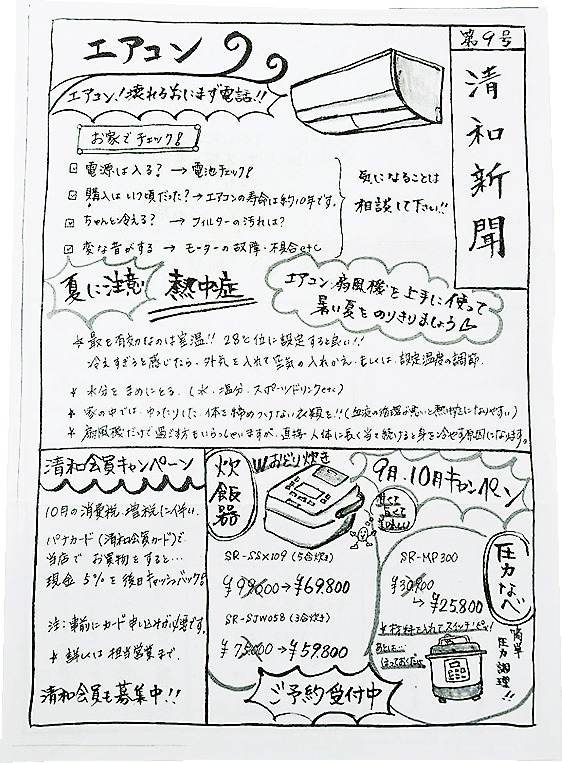 第9号
清和新聞
エアコン
エアコン!壊れるまえにまず電話!!
お家でチェック!
電源は入る? → 電池チェック!
購入はいつ頃だった? → エアコンの寿命は約10年です。
ちゃんと冷える? → フィルターの汚れは?
変な音がする → モーターの故障・不具合etc
気になることは
相談して下さい!!
夏に注意 熱中症
エアコン、扇風機を上手に使って
暑い夏をのりきりましょう
* 最も有効なのは室温!! 28℃位に設定すると良い!!
冷えすぎると感じたら、外気を入れて空気の入れかえ、もしくは、設定温度の調節
* 水分をまめにとる。(水、塩分、スポーツドリンクetc)
* 家の中では、ゆったりした、体を締めつけない衣類を!!(血液の循環が悪いと熱中症になりやすい)
* 扇風機だけで過ごす方もいらっしゃいますが、直接、人体に長く当て続けると身を冷やす原因になります。
清和会員キャンペーン
10月の消費税増税に伴い、
パナカード(清和会員カード)で
当店でお買物をすると…
現金5%を後日キャッシュバック!
注:事前にカード申し込みが必要です。
* 詳しくは担当営業まで。
清和会員も募集中!!
炊飯器
Wおどり炊き
9月、10月キャンペーン
SR-SSX109 (5合炊き)
¥99,000→¥69,800
SR-SJW058 (3合炊き)
¥75,000→¥59,800
ご予約受付中
圧力なべ
SR-MP300
¥30,900
→¥25,800
* 材料を入れてスイッチピッ!
あとは…
ほっておくだけ
簡単
圧力調理!!